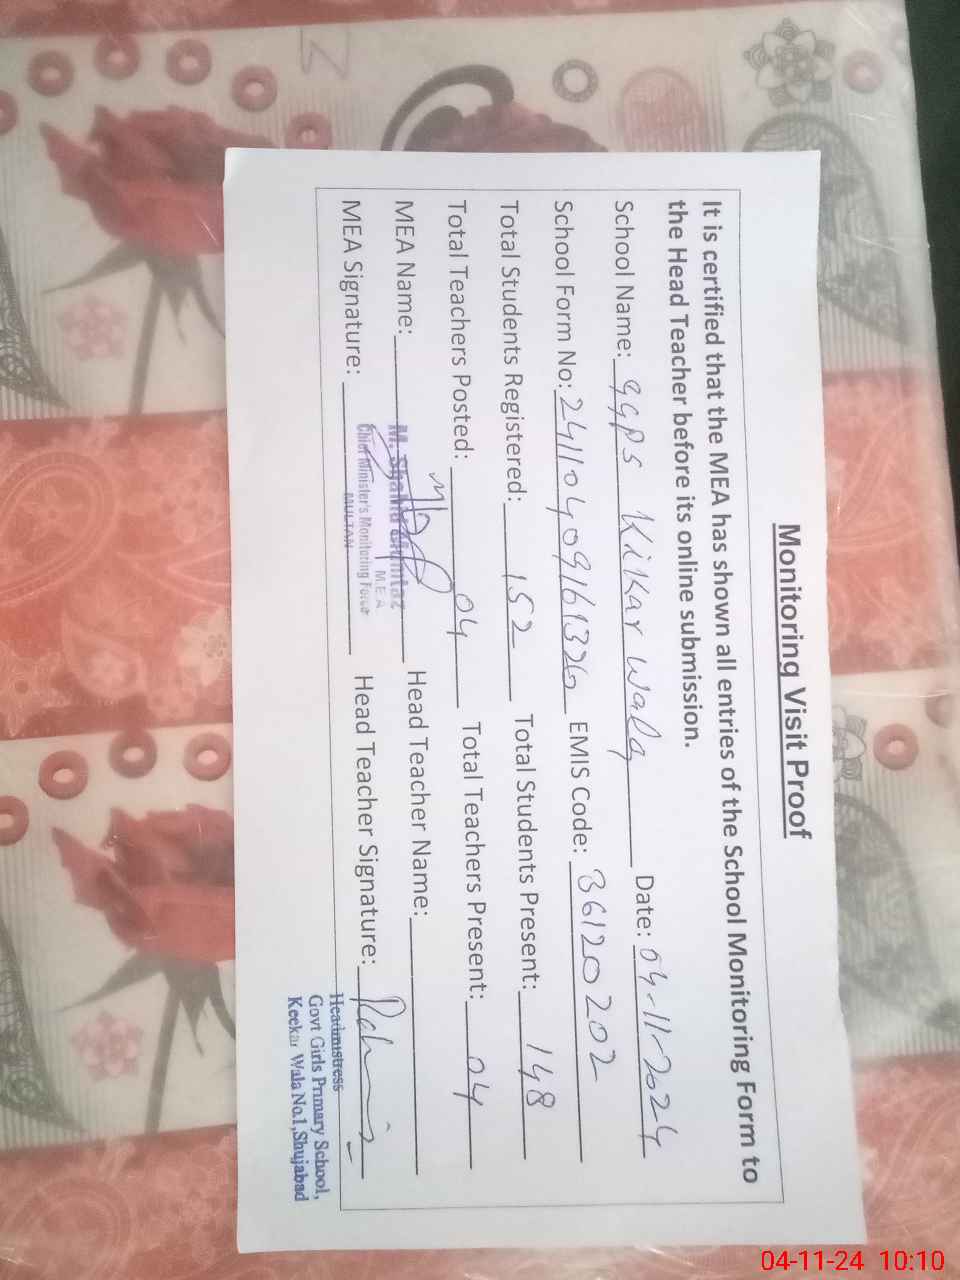 Monitoring Visit Proof
It is certified that the MEA has shown all entries of the School Monitoring Form to
the Head Teacher before its online submission.
School Name: GGPS Kikar Wala Date: 04-11-2024
School Form No: 24110409161326 EMIS Code: 36120202
Total Students Registered: 152 Total Students Present: 148
Total Teachers Posted: 04 Total Teachers Present: 04
MEA Name: Head Teacher Name:
M.
MEA
MEA Signature: Head Teacher Signature:
Chief Minister's Monitoring Force
MULTAN
Headmistress
Govt Girls Primary School,
Keekar Wala No.1, Shujabad
04-11-24 10:10